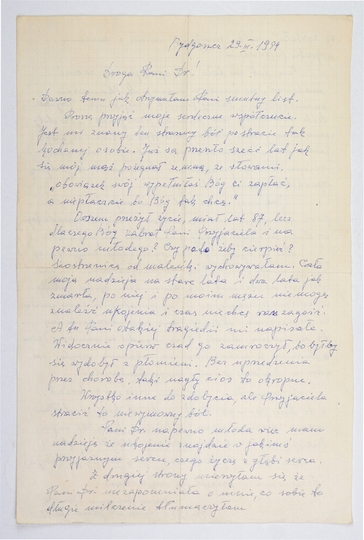 Bydgoszcz 29.XI.1984
Droga Pani Dr!
Dawno temu jak otrzymałam Pani smutny list.
Proszę przyjąć moje serdeczne współczucie.
Jest mi znany ten straszny ból po stracie tak
kochanej osoby. Już są prawie sześć lat jak
się mój mąż pożegnał ze mną, ze słowami.
"obowiązek swój wypełniłaś Bóg ci zapłać,
a nie płacz bo Bóg tak chce."
przeżył życie, miał lat 87, lecz
dlaczego Bóg zabrał Pani Przyjaciela i na
pewno młodego? Czy po to żeby cierpieć?
Siostrzenicę od maleńk. wychowywałam. Cała
moja nadzieja na stare lata i dwa lata jak
zmarła, po niej i po moim mężu nie mogę
znaleźć ukojenia i czas nie chce ran zagoić.
A tu Pani o takiej tragedii mi napisała.
Widocznie czad go zamroczył, bo byłby
się wydobył z płomieni. Bez uprzedzenia
przez chorobę, taki nagły cios to okropne.
Wszystko inne do zdobycia, ale Przyjaciela
stracić to niewymowny ból.
Pani Dr. na pewno młoda więc mam
nadzieję że ukojenie znajdzie w jakimś
przyjaznym sercu, czego życzę z głębi serca.
Z drugiej strony cieszyłam się że
Pani Dr. nie zapomniała o mnie, co sobie to
długie milczenie tłumaczyłam